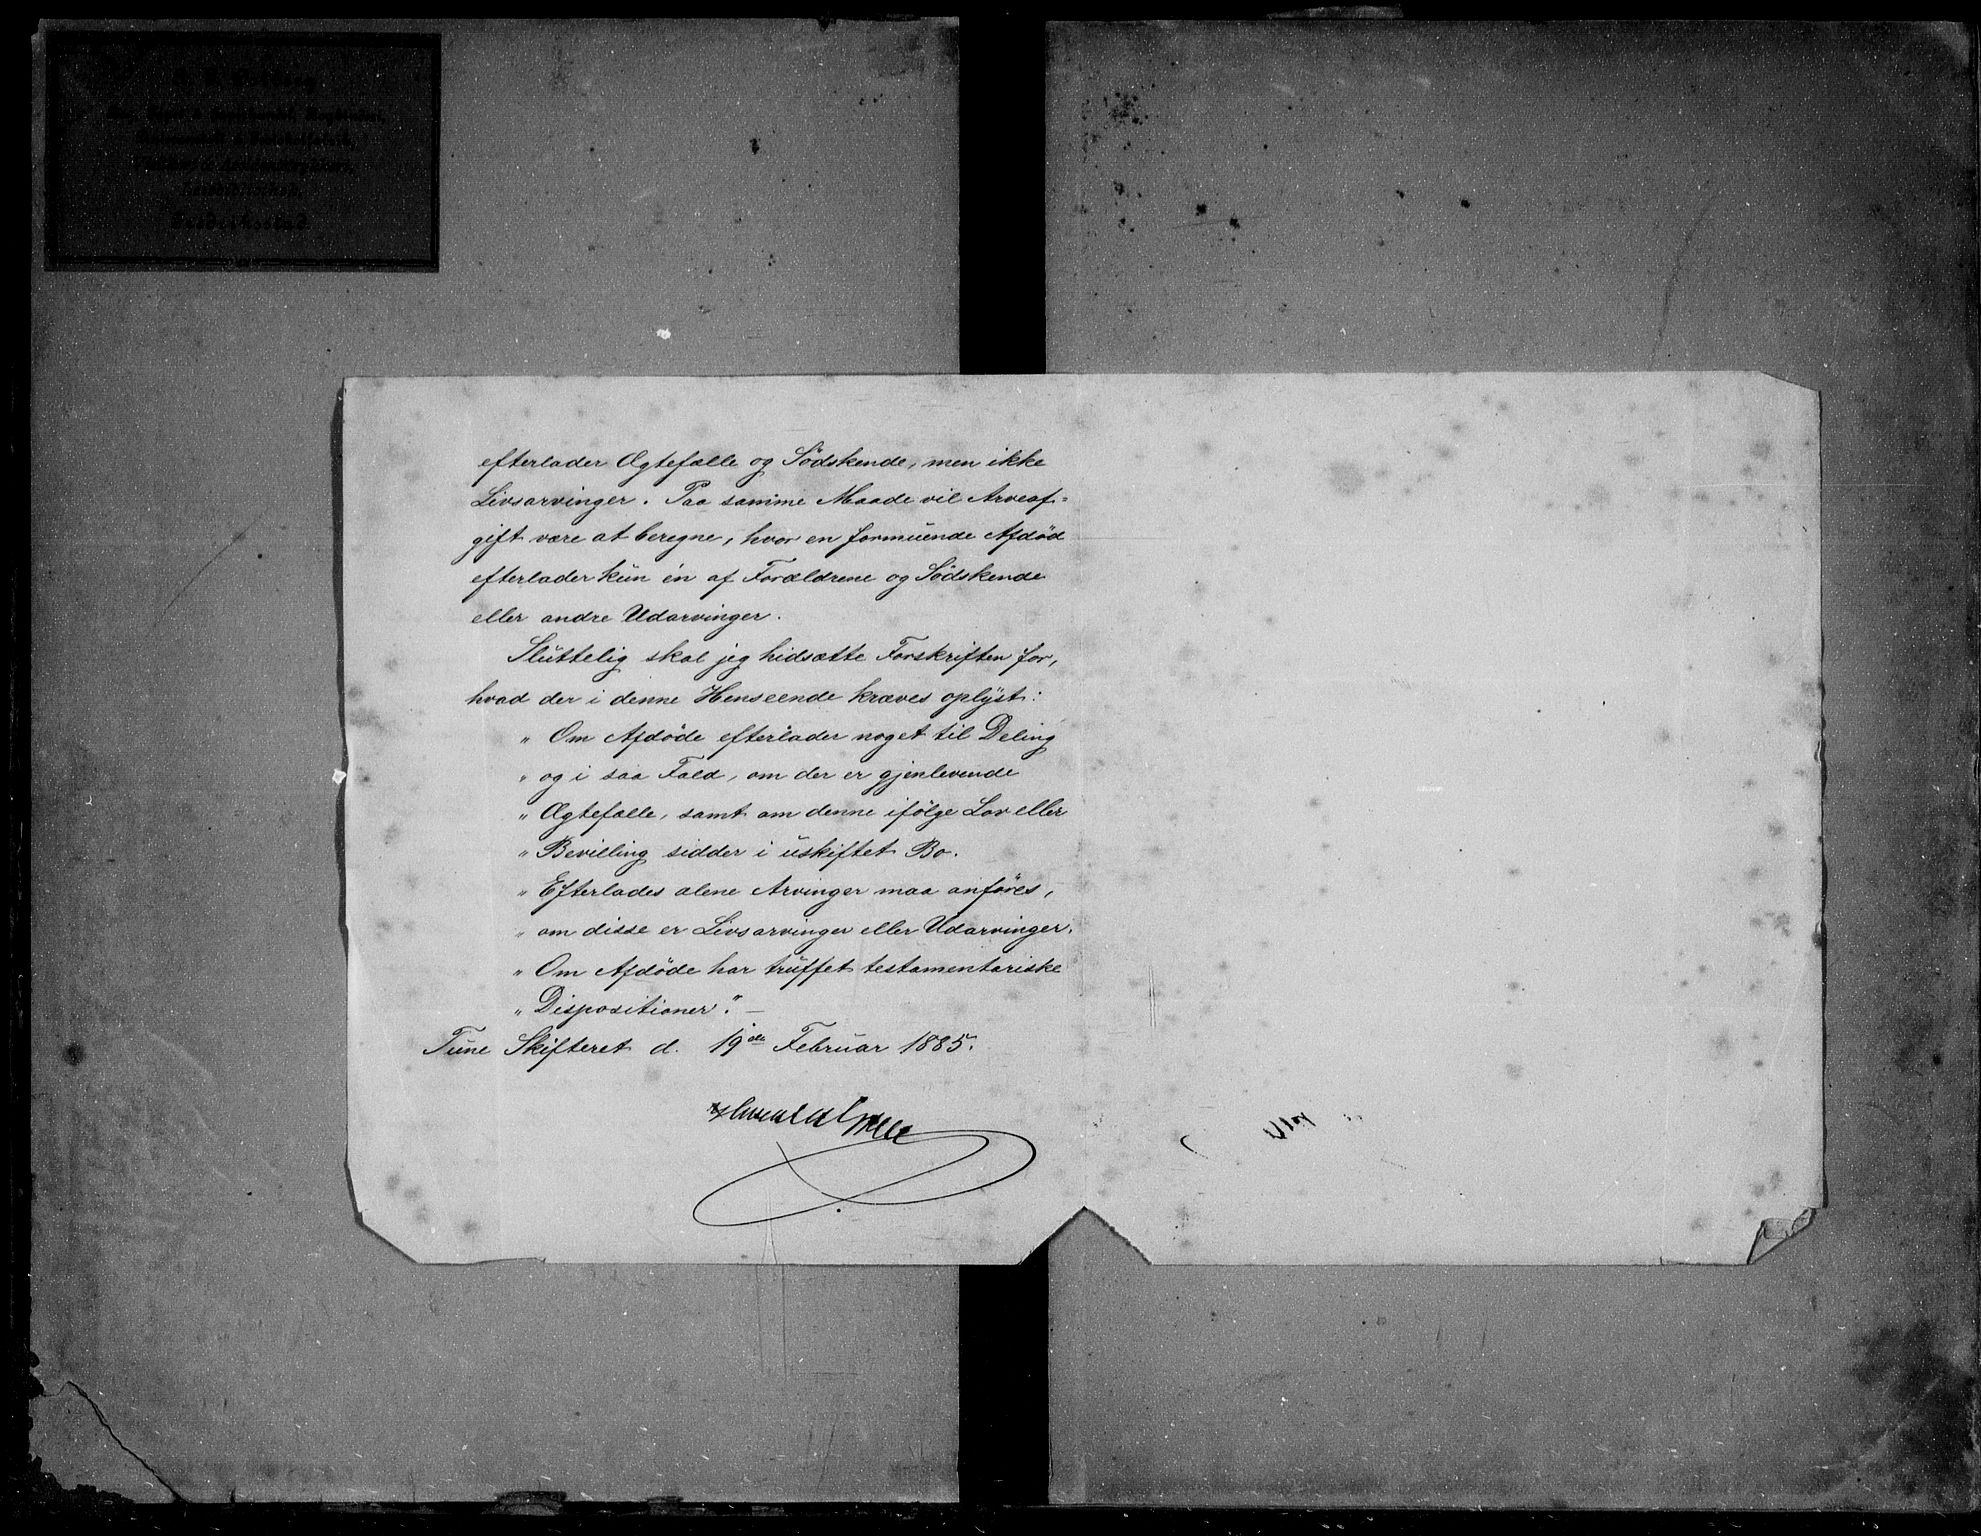 efterlader Ægtefælle og Södskende, men ikke
Livsarvinger. Paa samme Maade vil Arveaf=
gift være at beregne, hvor en formuende Afdød
efterlader kun én af Forældrene og Södskende
eller andre Udarvinger.
Sluttelig skal jeg hidsætte Forskriften for,
hvad der i denne Henseende kræves oplyst:
„ Om Afdøde efterlader noget til Deling
„ og i saa Fald, om der er gjenlevende
„ Ægtefælle, samt om denne ifölge Lov eller
„ Bevilling sidder i uskiftet Bo.
„ Efterlades alene Arvinger maa anföres,
„ om disse er Livsarvinger eller Udarvinger.
„ Om Afdöde har truffet testamentariske
„ Dispositioner“. —
Tune Skifteret d. 19de Februar 1885.